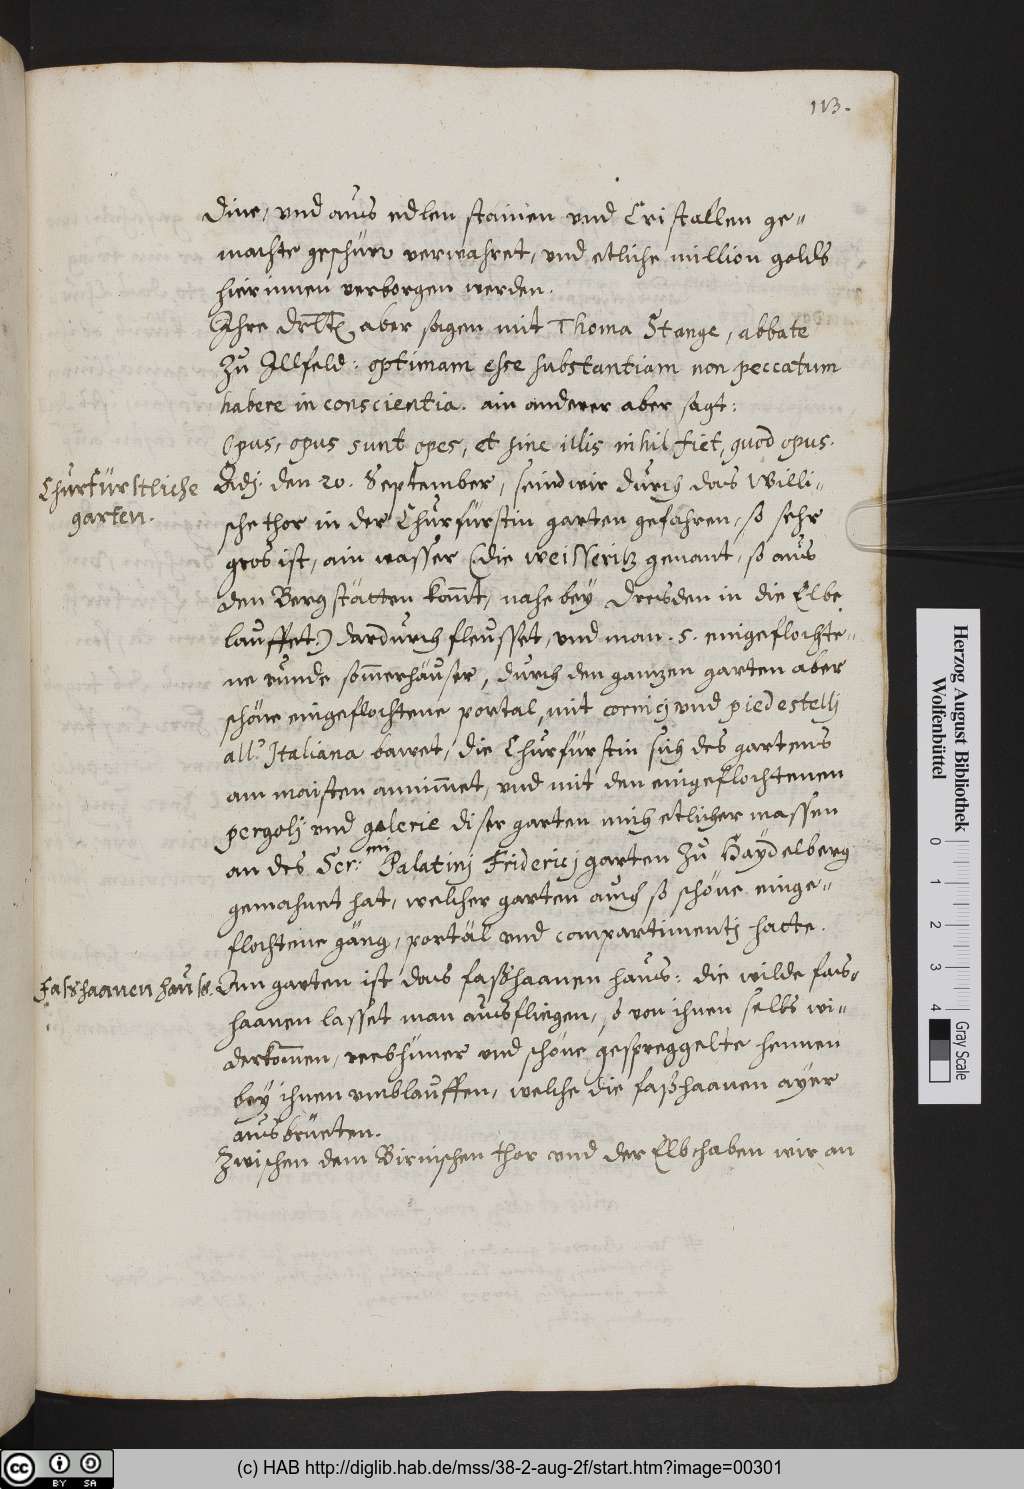 113.
dine, vnd aus edlen stainen vnd Cristallen ge-
machte geschürr verwahret, vnd etliche million golds
hierinnen verborgen werden.
Ihre Drltt. aber sagen mit Thoma Stange, abbate
zu Illfeld: optimam esse substantiam non peccatum
habere in conscientia. ain anderer aber sagt:
Opus, opus sunt opes, et sine illis nihil fiet, quod opus.
Churfürstliche
garten.
Adj. den 20. September, seind wir durch das Willi-
sche thor in der Churfürstin garten gefahren, so sehr
gros ist, ain wasser (die weisseritz genant, so aus
den Bergstätten komt, nahe bey Dresden in die Elbe
lauffet.) dardurch fleusset, vnd man .5. eingeflochte-
ne runde somerhäuser, durch den gantzen garten aber
schöne eingeflochtene portal, mit cornicj vnd piedestellj
all' Italiana bawet, die Churfürstin sich des gartens
am maisten annimmet, vnd mit den eingeflochtenen
pergolj vnd galerie diser garten mich etlicher massen
an des Ser:em Palatinj Fridericj garten zu Haydelberg
gemahnet hat, welcher garten auch so schöne einge-
flochtene gäng, portäl vnd compartimentj hatte.
Fasshaanen haus.
Im garten ist das fasshaanen haus: die wilde fas-
haanen lasset man ausfliegen, so von ihnen selbs wi-
derkomen, reebhüner vnd schöne gespreggelte hennen
bey ihnen vmblauffen, welche die fasshaanen ayer
ausbrüeten.
Zwischen dem Birnischen thor vnd der Elb haben wir an
Herzog August Bibliothek
Wolfenbüttel
0 1 2 3 4
Gray Scale
cc BY SA
(c) HAB http://diglib.hab.de/mss/38-2-aug-2f/start.htm?image=00301